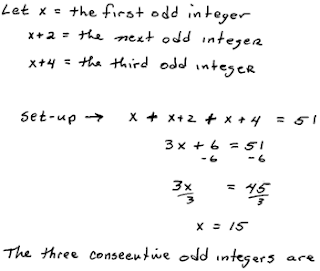 Let x = the first odd integer
x+2 = the next odd integer
x+4 = the third odd integer
Set-up → x + x+2 + x+4 = 51
3x + 6 = 51
-6 -6
3x = 45
3 3
x = 15
The three consecutive odd integers are